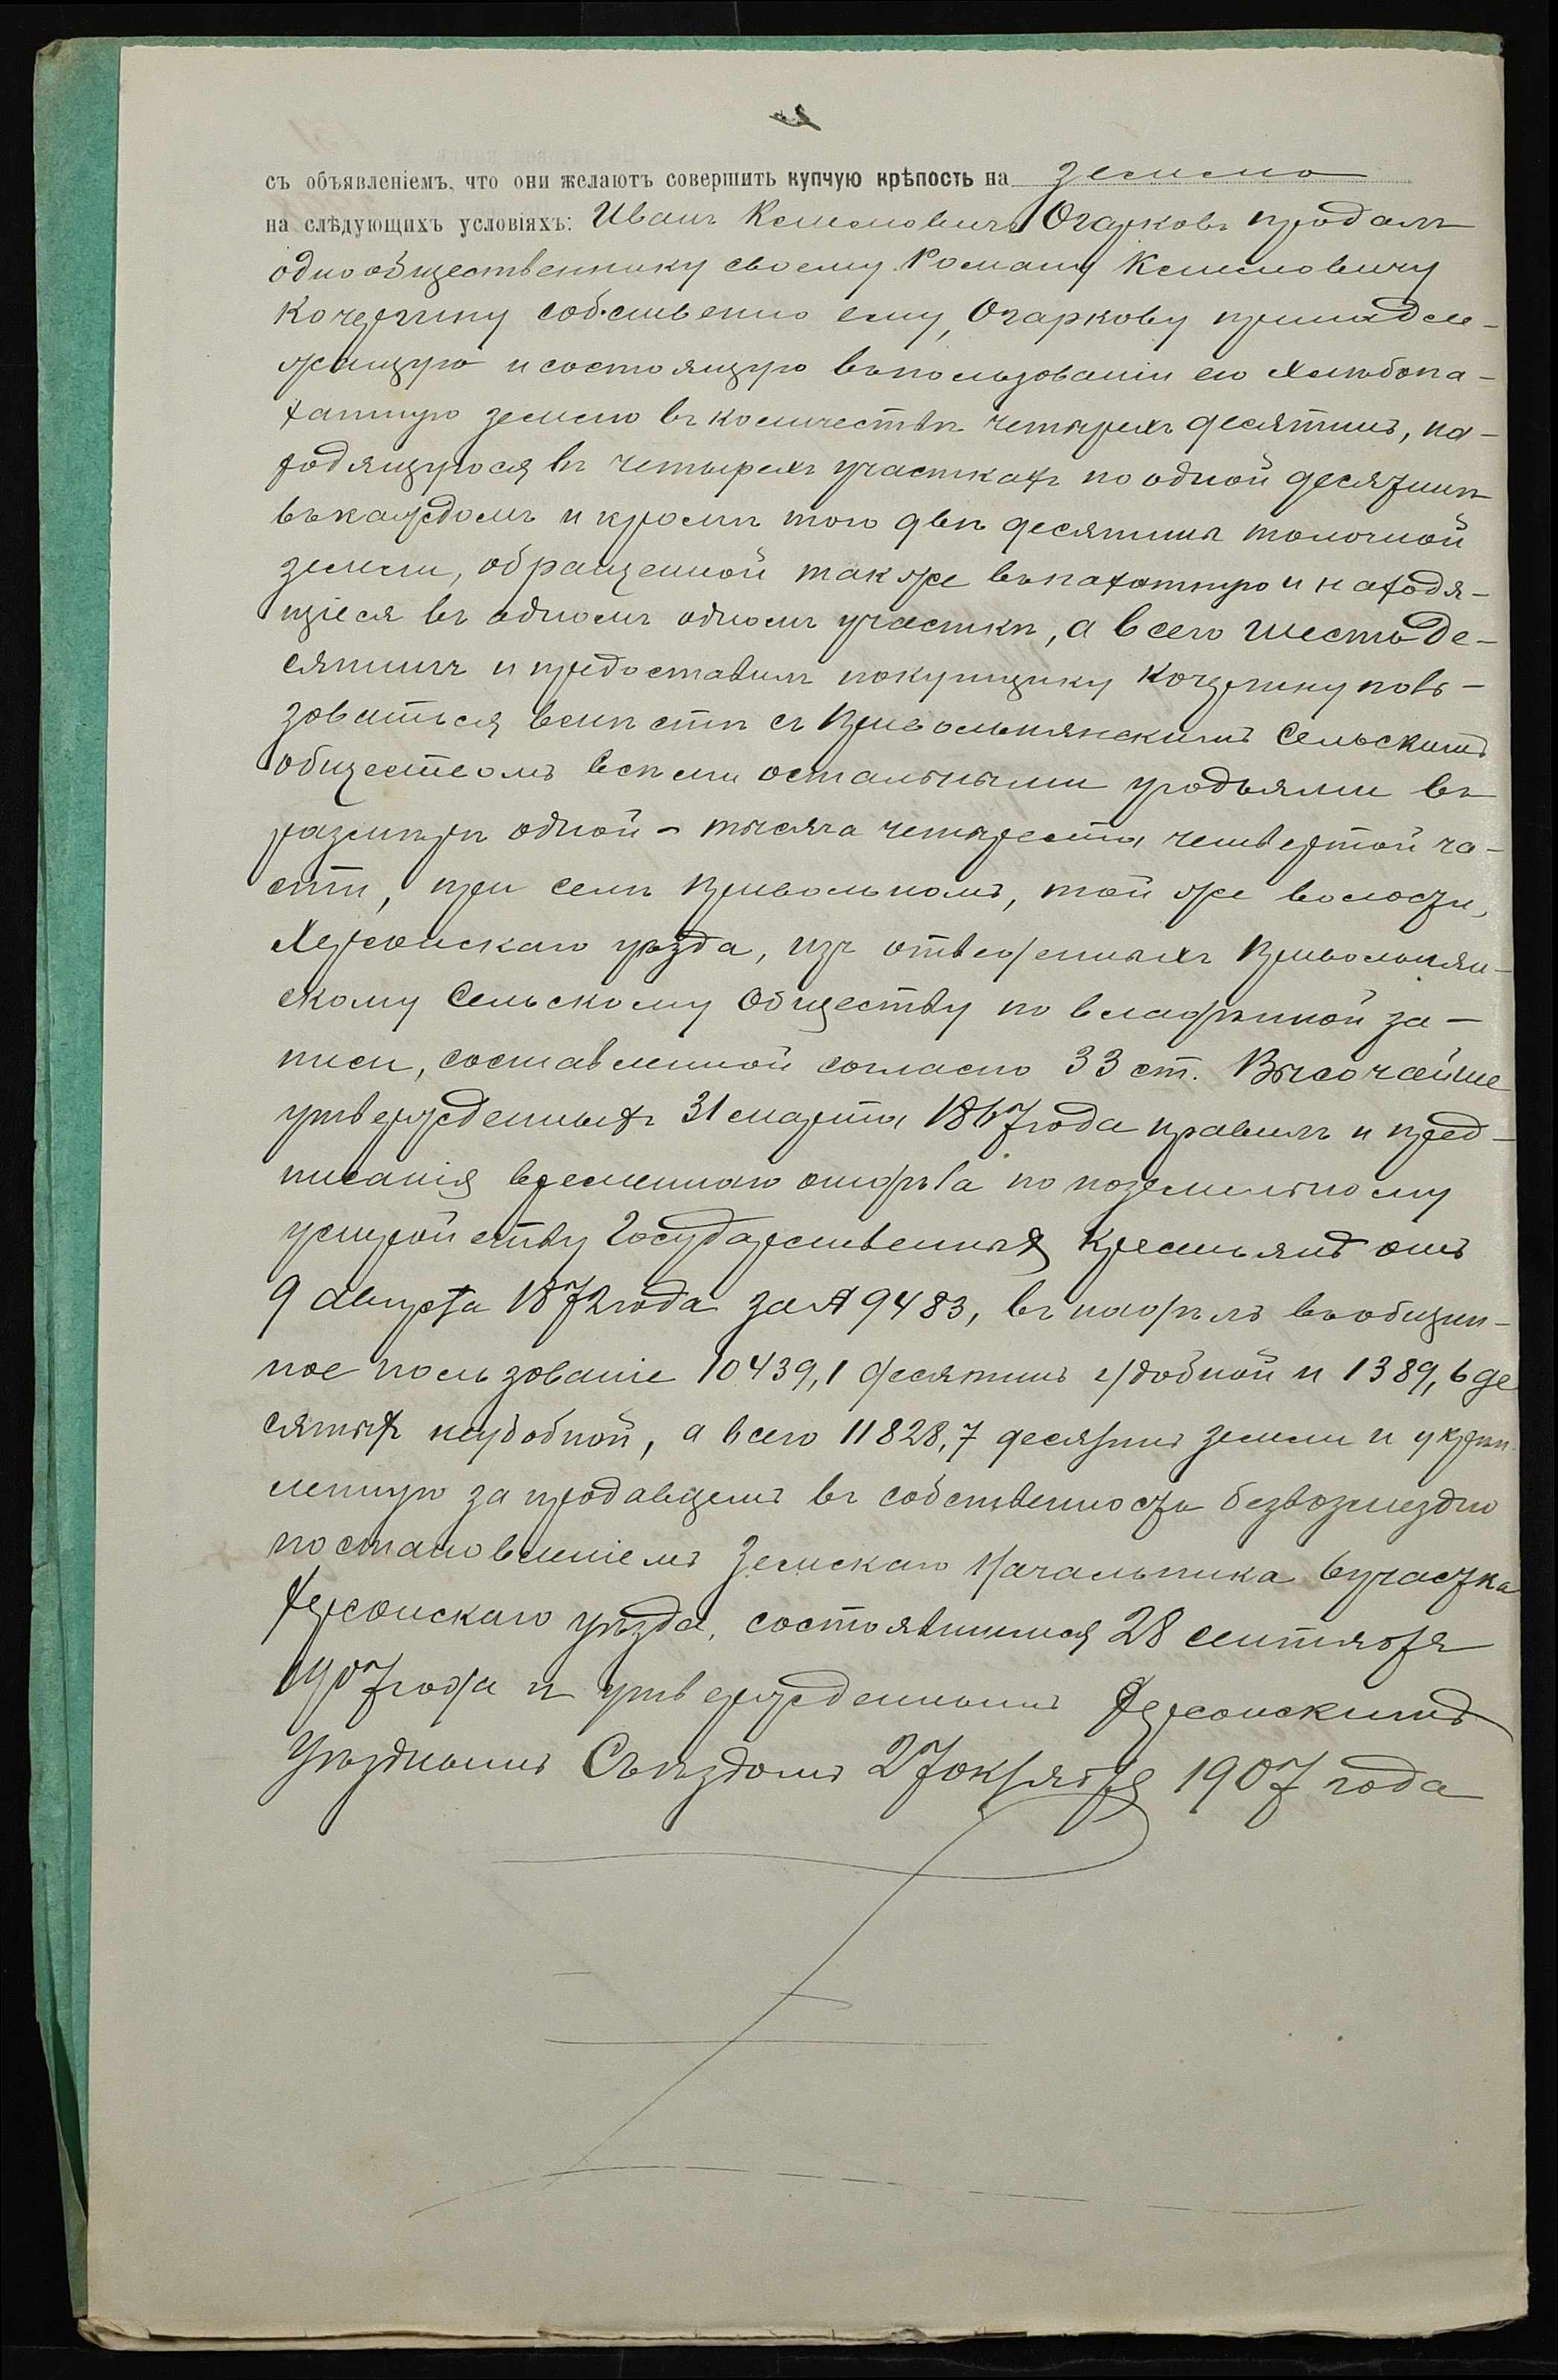 съ объявленіемъ, что они желаютъ совершить купчую крѣпость на землю
на слѣдующихъ условіяхъ: Иванъ Климовичъ Огарковъ продалъ
однообщественнику своему Роману Климовичу
Кочергину собственно ему, Огаркову принадле-
жащую и состоящую въ пользованіи его хлѣбопа-
хатную землю въ количествѣ четырехъ десятинъ, на-
ходящуюся въ четырехъ участкахъ по одной десятинѣ
въ каждомъ и кромѣ того двѣ десятины толочной
земли, обращенной также въ пахатную и находя-
щіеся въ одномъ одномъ участкѣ, а всего шесть де-
сятинъ и предоставилъ покупщику Кочергину поль-
зоваться вмѣстѣ съ Привольнянскимъ Сельскимъ
Обществомъ всѣми остальными угодьями въ
размѣрѣ одной - тысяча четыреста четвертой ча-
сти, при селѣ Привольномъ, той же волости,
Херсонскаго уѣзда, изъ отведенныхъ Привольнян-
скому Сельскому Обществу по владѣнной за-
писи, составленной согласно 33 ст. Высочайше
утвержденныхъ 31 марта 1867 года правилъ и пред-
писанія временнаго отдѣла по поземельному
устройству Государственныхъ Крестьянъ отъ
9 Августа 1872 года за № 9483, въ надѣлъ въ общин-
ное пользованіе 10439,1 десятинъ удобной и 1389,6 де
сятинъ неудобной, а всего 11828,7 десятинъ земли и укрѣп
ленную за продавцемъ въ собственность безвозмездно
постановленіемъ Земскаго Начальника 6 участка
Херсонскаго уѣзда, состоявшимся 28 сентября
1907 года и утвержденнымъ Херсонскимъ
Уѣзднымъ Съѣздомъ 27 октября 1907 года